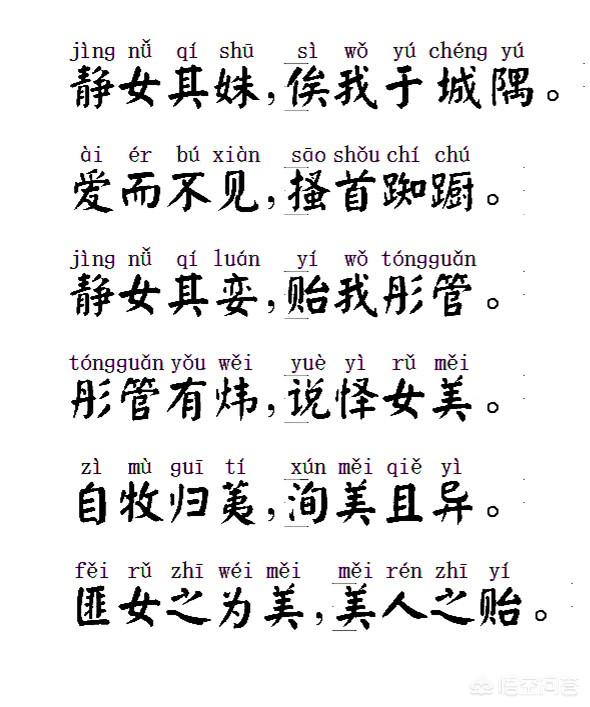 jìng nǚ qí shū sì wǒ yú chéng yú
静女其姝，俟我于城隅。
ài ér bú xiàn sāo shǒu chí chú
爱而不见，搔首踟蹰。
jìng nǚ qí luán yí wǒ tóngguǎn
静女其娈，贻我彤管。
tóngguǎn yǒu wěi yuè yì rǔ měi
彤管有炜，说怿女美。
zì mù guī tí xún měi qiě yì
自牧归荑，洵美且异。
fěi rǔ zhī wéi měi měi rén zhī yí
匪女之为美，美人之贻。
悟空问答